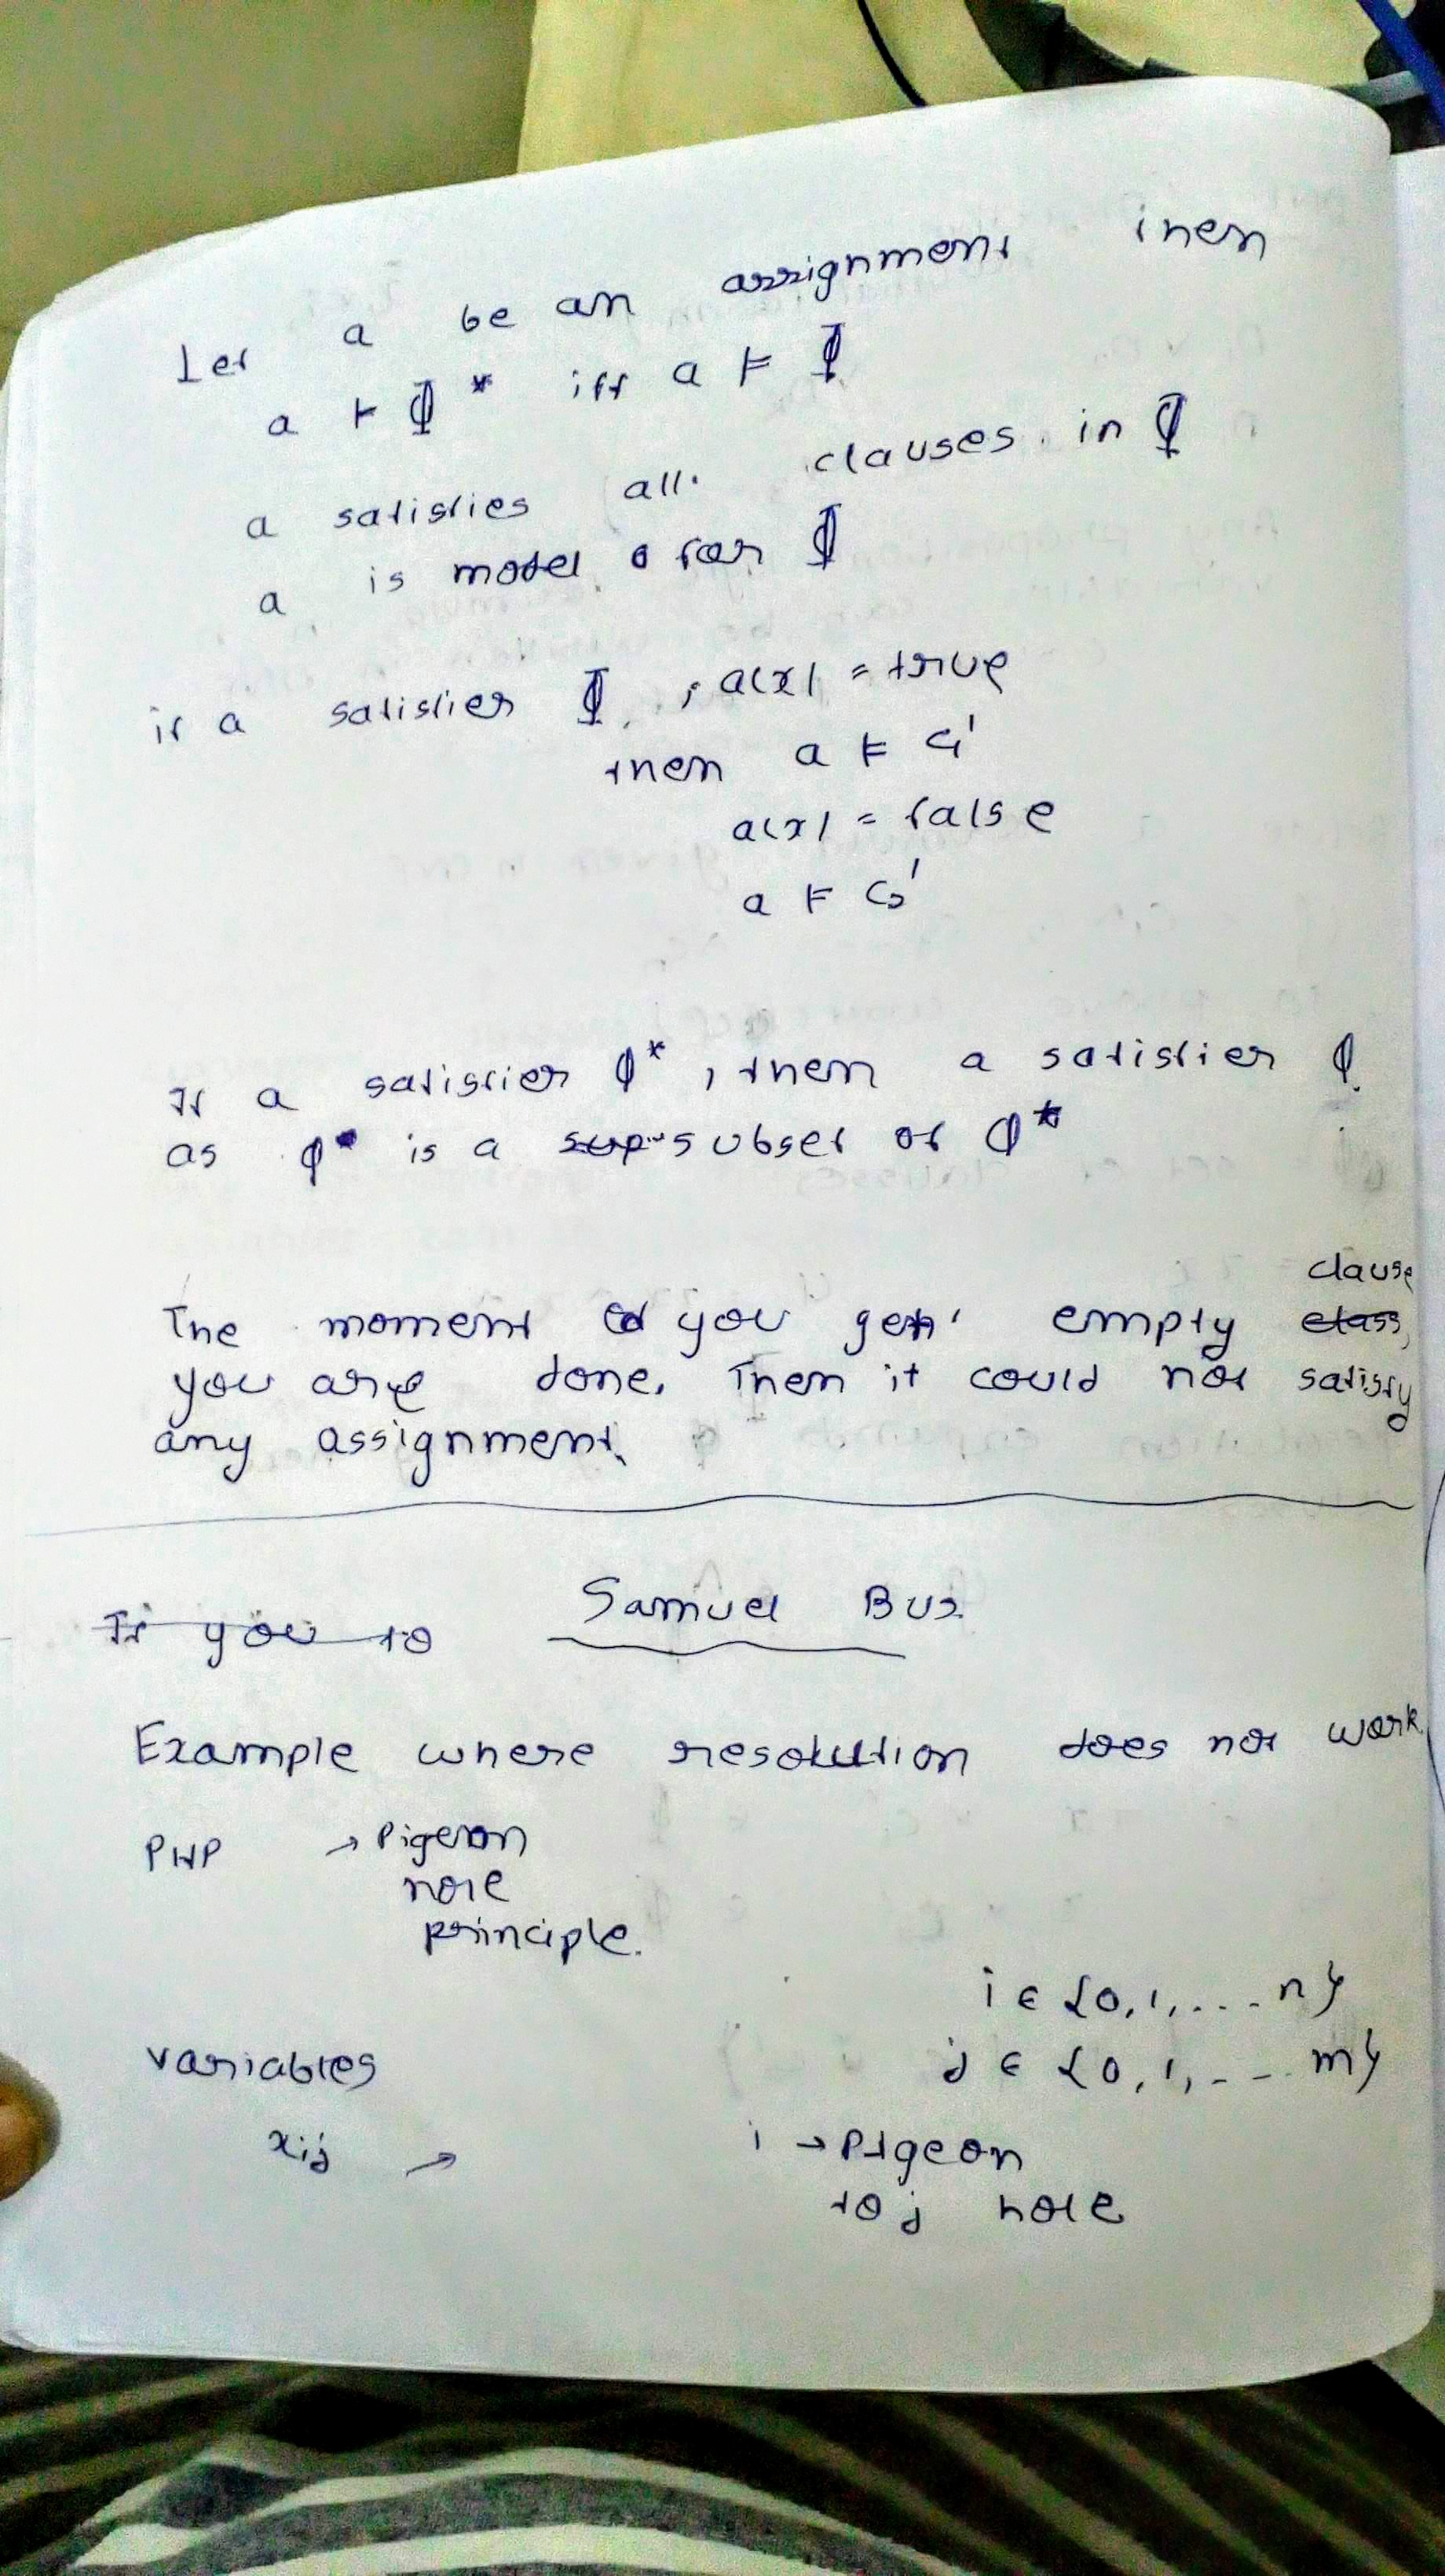 Let a be an assignment then
a ⊢ Φ* iff a ⊨ Φ
a satisfies all clauses in Φ
a is model for Φ
if a satisfies Φ, a(x) = true
then a ⊨ C1'
a(x) = false
a ⊨ C2'
If a satisfies Φ*, then a satisfies Φ.
as Φ is a sup subset of Φ*
clause
The moment you get empty class,
you are done. Then it could not satisfy
any assignment.
If you to Samuel Bus.
Example where resolution does not work.
PHP → Pigeon
hole
principle.
i ∈ {0,1,...n}
variables j ∈ {0,1,--m}
xij → i → Pigeon
to j hole